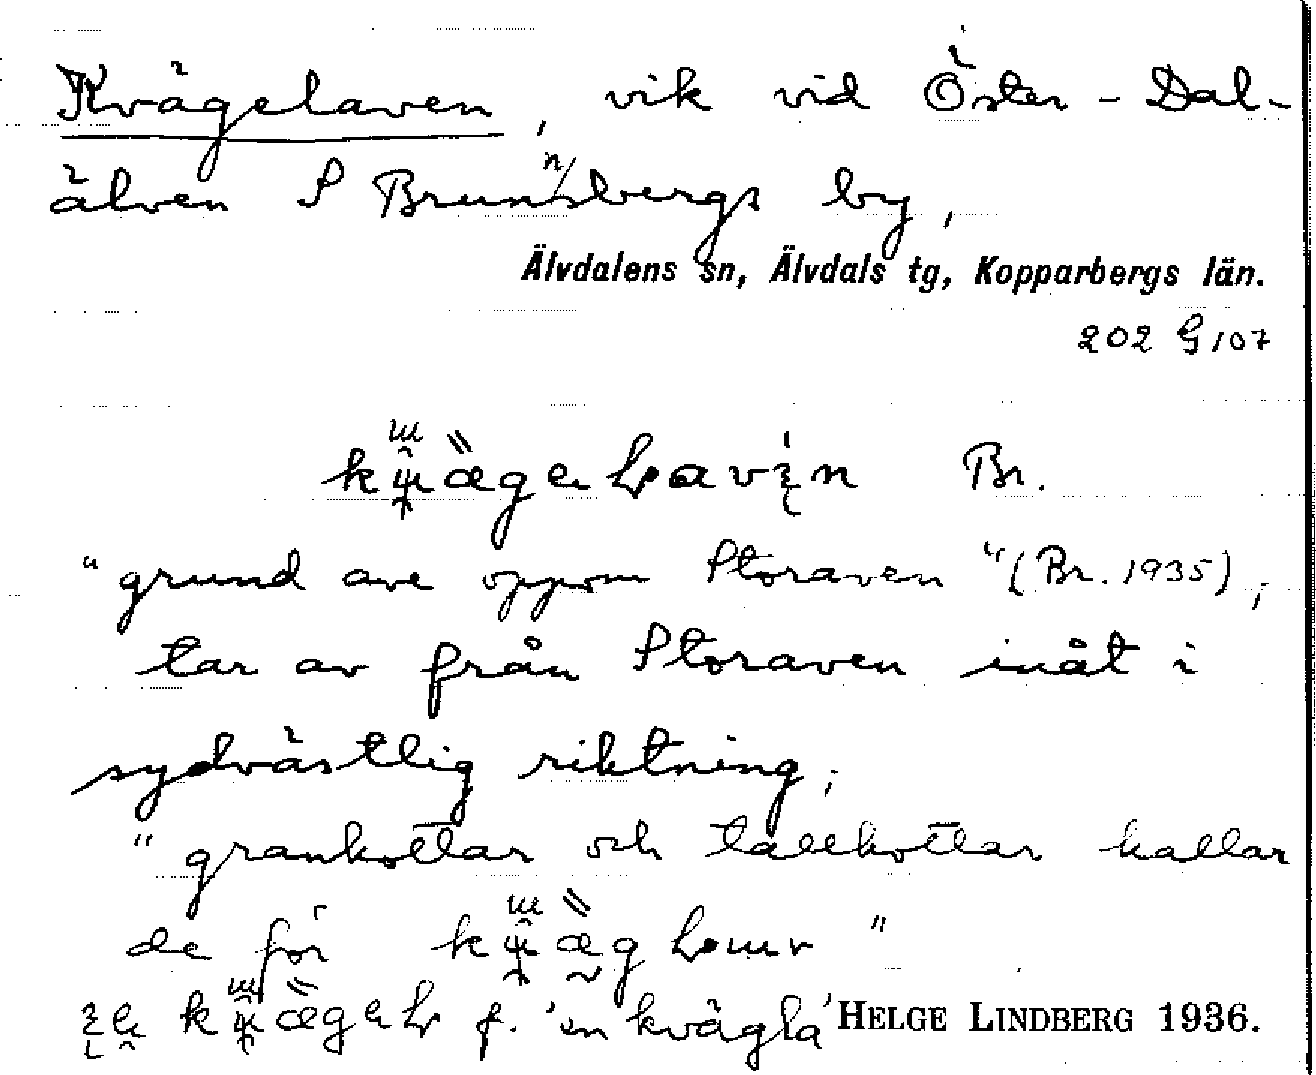 Kvägelaven, vik vid Öster-Dal-
älven S Brunnsbergs by,
Älvdalens sn, Älvdals tg, Kopparbergs län.
202 G 107
Br.
"grund ave oppom Storaven" (Br. 1935),
tar av från Storaven inåt i
sydvästlig riktning;
"grankottar och tallkottar kallar
de för "
f. 'en kvägla' HELGE LINDBERG 1936.